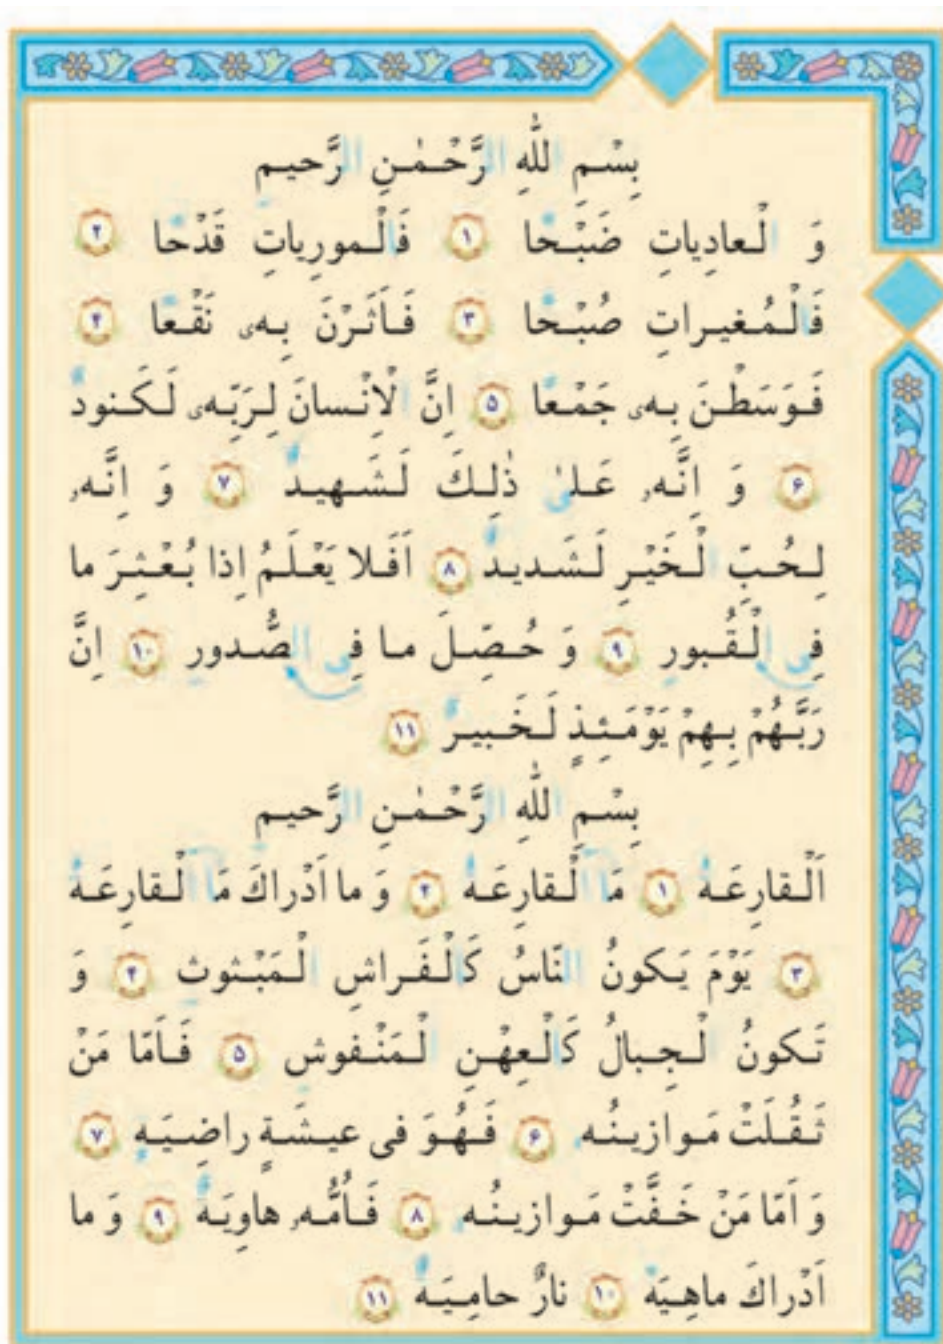 بِسْمِ اللّٰهِ الرَّحْمٰنِ الرَّحيم
وَ الْعادِياتِ ضَبْحًا ۱ فَالْمورِياتِ قَدْحًا ۲
فَالْمُغيراتِ صُبْحًا ۳ فَاَثَرْنَ بِهٖ نَقْعًا ۴
فَوَسَطْنَ بِهٖ جَمْعًا ۵ اِنَّ الْاِنْسانَ لِرَبِّهٖ لَكَنودٌ
۶ وَ اِنَّهٗ عَلىٰ ذٰلِكَ لَشَهيدٌ ۷ وَ اِنَّهٗ
لِحُبِّ الْخَيْرِ لَشَديدٌ ۸ اَفَلا يَعْلَمُ اِذا بُعْثِرَ ما
فِی الْقُبورِ ۹ وَ حُصِّلَ ما فِی الصُّدورِ ۱۰ اِنَّ
رَبَّهُمْ بِهِمْ يَوْمَئِذٍ لَخَبيرٌ ۱۱
بِسْمِ اللّٰهِ الرَّحْمٰنِ الرَّحيم
اَلْقارِعَةُ ۱ مَا الْقارِعَةُ ۲ وَ ما اَدْراكَ مَا الْقارِعَةُ
۳ يَوْمَ يَكونُ النّاسُ كَالْفَراشِ الْمَبْثوثِ ۴ وَ
تَكونُ الْجِبالُ كَالْعِهْنِ الْمَنْفوشِ ۵ فَاَمّا مَنْ
ثَقُلَتْ مَوازينُهٗ ۶ فَهُوَ فی عيشَةٍ راضِيَةٍ ۷
وَ اَمّا مَنْ خَفَّتْ مَوازينُهٗ ۸ فَاُمُّهٗ هاوِيَةٌ ۹ وَ ما
اَدْراكَ ماهِيَهْ ۱۰ نارٌ حامِيَةٌ ۱۱